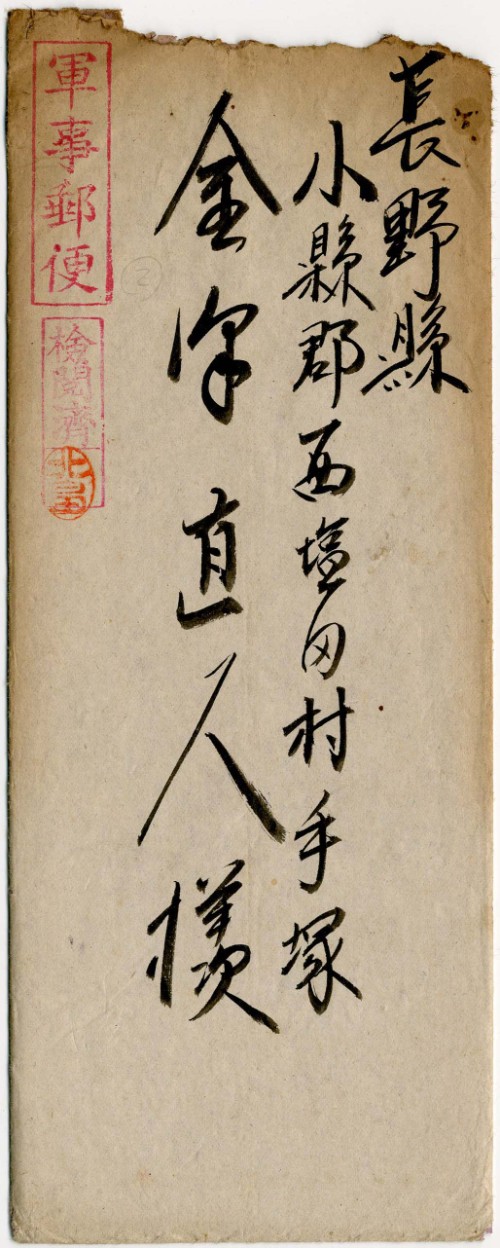 長野縣
小縣郡西塩田村手塚
金澤直人樣
軍事郵便
檢閲濟